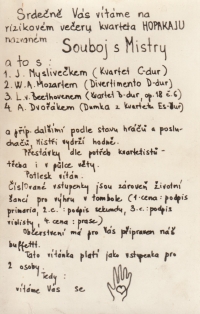 Srdečně Vás vítáme na
rizikovém večeru kvarteta HOPAKAJU
nazvaném
Souboj s Mistry
a to s :
1. J. Myslivečkem (Kvartet C-dur)
2. W.A. Mozartem (Divertimento D-dur)
3. L. v. Beethovenem (Kvartet D-dur, op. 18 č. 6)
4. A. Dvořákem (Dumka z Kvartetu Es-dur)
a příp. dalšími podle stavu hráčů a poslu-
chačů, Mistři vydrží hodně.
Přestávky dle potřeb kvartetistů -
třeba i v půlce věty.
Potlesk vítán.
Číslované vstupenky jsou zároveň životní
šancí pro výhru v tombole. (1. cena: podpis
primária, 2. c. : podpis sekundu, 3. c. : podpis
violisty, 4. cena : prase)
Občerstvení má pro Vás připraven náš
buffett.
Tato vítánka platí jako vstupenka pro
2 osoby.
Tedy :
vítáme Vás se